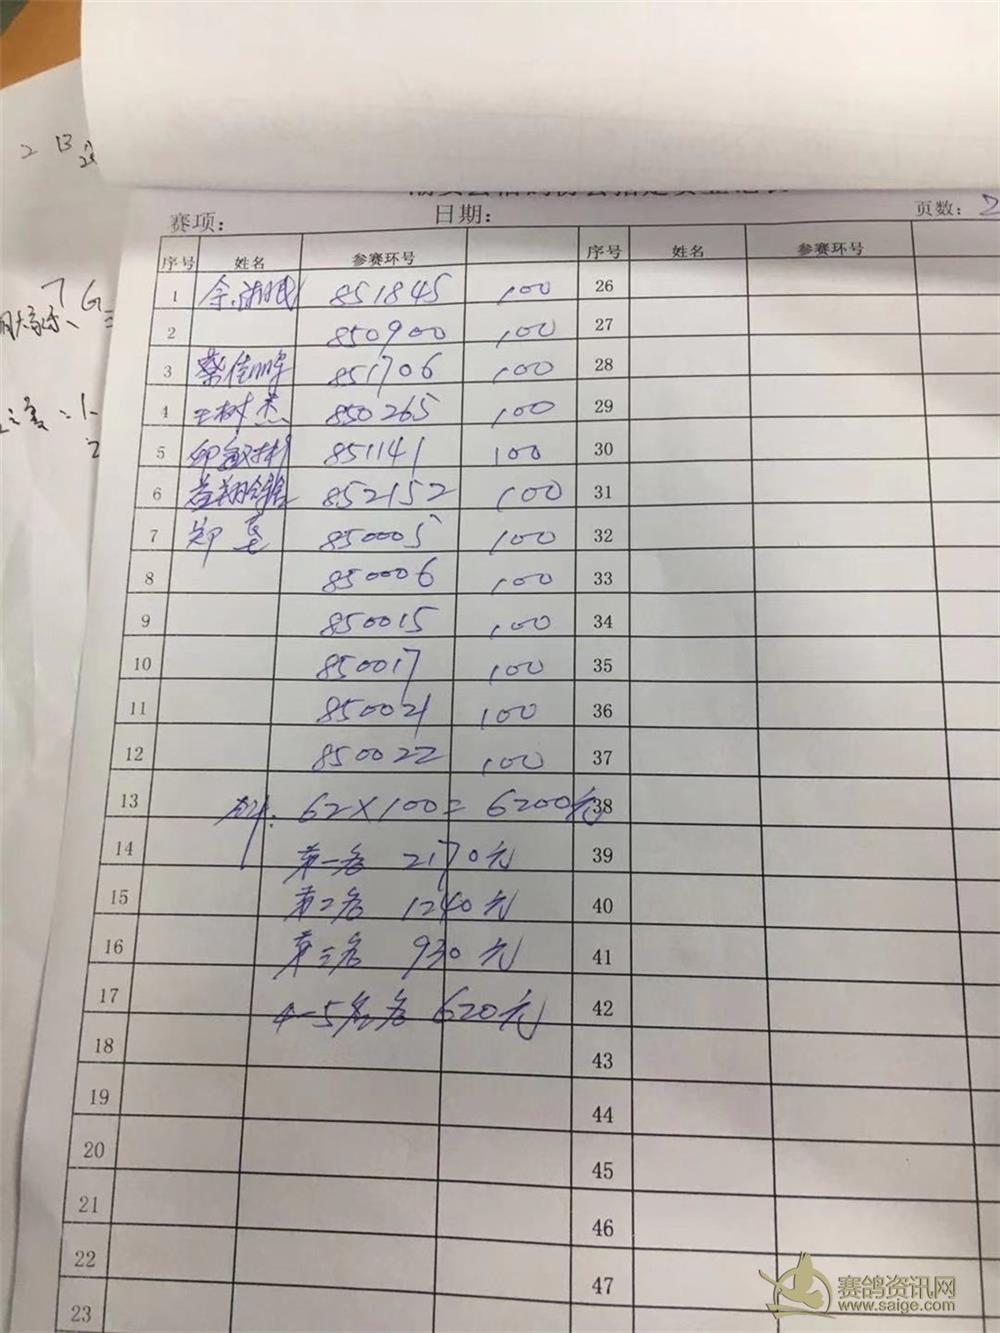 2 日
赛项: 日期: 页数: 2
序号 姓名 参赛环号 序号 姓名 参赛环号
1 851845 100 26
2 850900 100 27
3 蔡佳 851706 100 28
4 王树杰 850265 100 29
5 851141 100 30
6 852152 100 31
7 郑 850005 100 32
8 850006 100 33
9 850015 100 34
10 850017 100 35
11 850021 100 36
12 850022 100 37
13 62×100= 6200元 38
14 第一名 2170元 39
15 第二名 1240元 40
16 第三名 930元 41
17 4-5名各 620元 42
18 43
19 44
20 45
21 46
22 47
23
赛鸽资讯网
www.saige.com